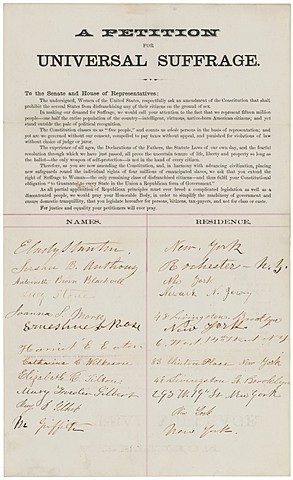 A PETITION
FOR
UNIVERSAL SUFFRAGE.
To the Senate and House of Representatives:
The undersigned, Women of the United States, respectfully ask an amendment of the Constitution that shall
prohibit the several States from disfranchising any of their citizens on the ground of sex.
In making our demand for Suffrage, we would call your attention to the fact that we represent fifteen million
people—one half the entire population of the country—intelligent, virtuous, native-born American citizens; and yet
stand outside the pale of political recognition.
The Constitution classes us as "free people," and counts us whole persons in the basis of representation; and
yet are we governed without our consent, compelled to pay taxes without appeal, and punished for violations of law
without choice of judge or juror.
The experience of all ages, the Declarations of the Fathers, the Statute Laws of our own day, and the fearful
revolution through which we have just passed, all prove the uncertain tenure of life, liberty and property so long as
the ballot—the only weapon of self-protection—is not in the hand of every citizen.
Therefore, as you are now amending the Constitution, and, in harmony with advancing civilization, placing
new safeguards round the individual rights of four millions of emancipated slaves, we ask that you extend the
right of Suffrage to Woman—the only remaining class of disfranchised citizens—and thus fulfil your Constitutional
obligation "to Guarantee to every State in the Union a Republican form of Government."
As all partial application of Republican principles must ever breed a complicated legislation as well as a
discontented people, we would pray your Honorable Body, in order to simplify the machinery of government and
ensure domestic tranquillity, that you legislate hereafter for persons, citizens, tax-payers, and not for class or caste.
For justice and equality your petitioners will ever pray.
NAMES. RESIDENCE.
E Cady Stanton New York
Susan B. Anthony Rochester N.Y.
Antoinette Brown Blackwell New York
Lucy Stone Newark N. Jersey
Joanna S. Morse 48 Livingston Brooklyn
Ernestine L Rose New York
Harriet E. Eaton 6 West 14th Street N.Y
Catharine C. Wilkeson 83 Clinton Place New York
Elizabeth R. Tilton 48 Livingston St Brooklyn
Mary Fowler Gilbert 293 W. 19th St New York
Gilbert New York
M Griffith New York.